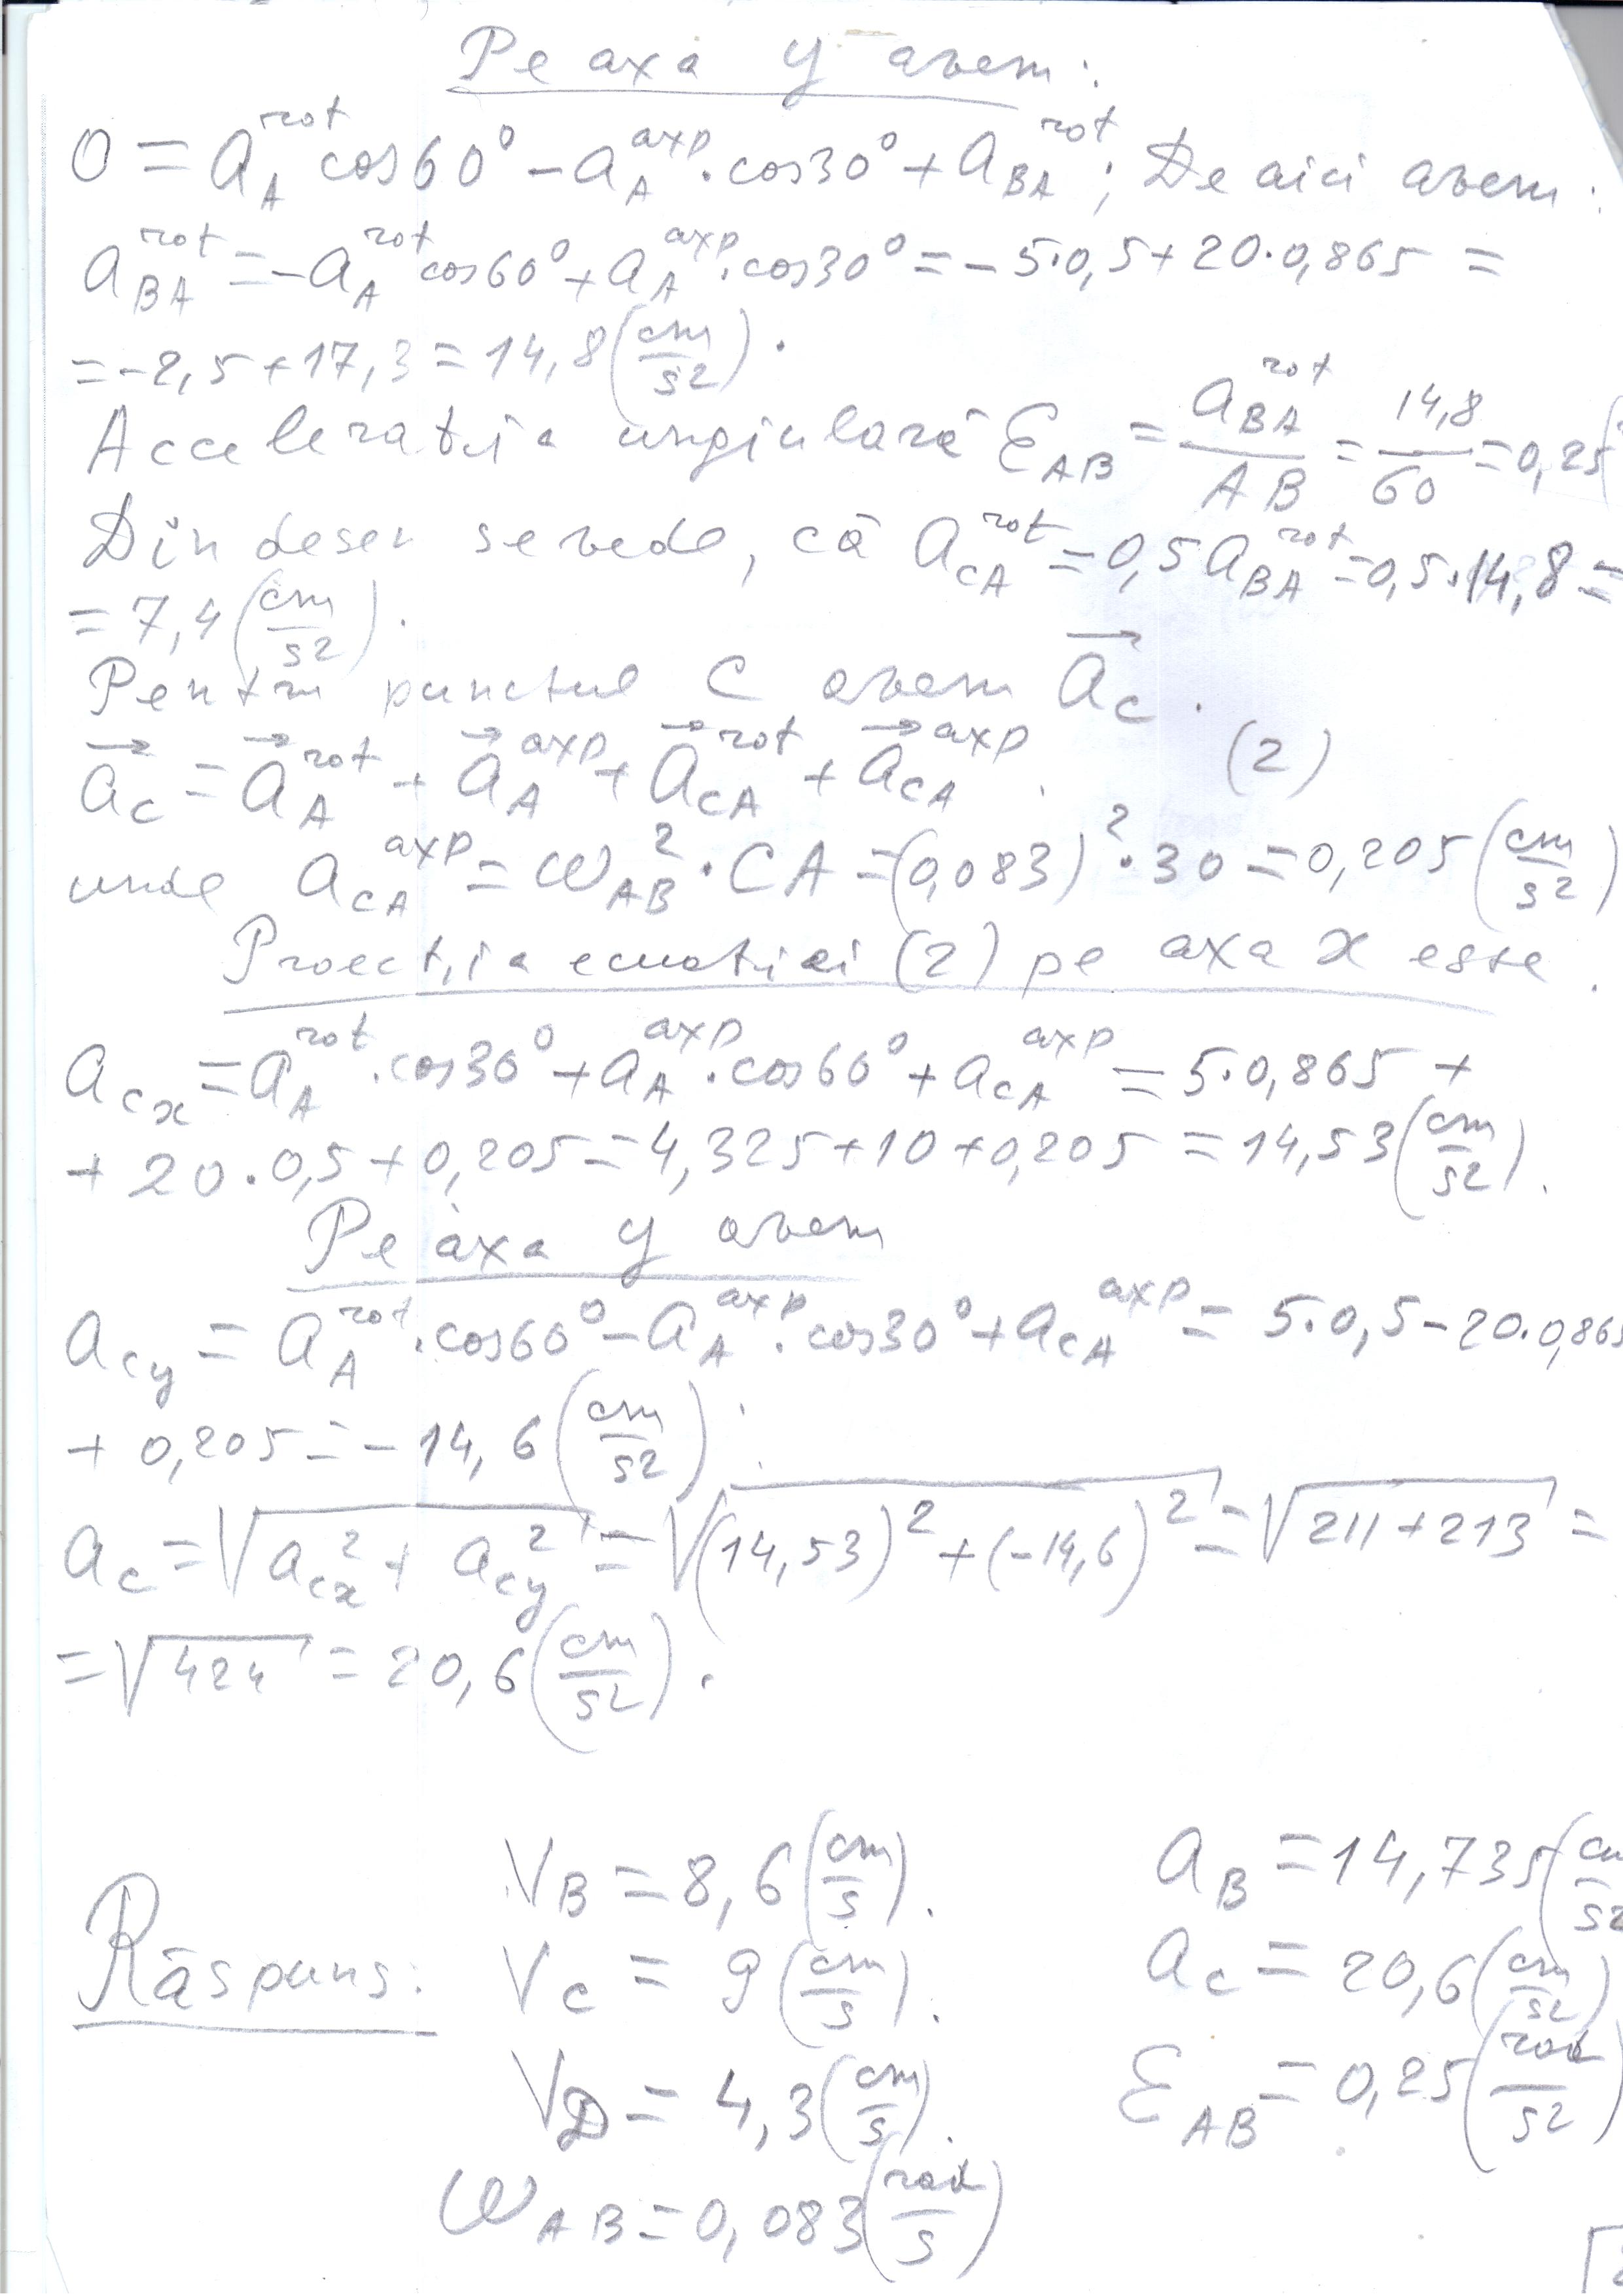 Pe axa y avem:
0 = a_A^rot cos60° - a_A^axp · cos30° + a_BA^rot; De aici avem:
a_BA^rot = -a_A^rot cos60° + a_A^axp · cos30° = -5·0,5 + 20·0,865 =
= -2,5 + 17,3 = 14,8 (cm/s2).
Acceleratia ungiulară Ɛ_AB = a_BA^rot / AB = 14,8 / 60 = 0,25 (
Din desen se vede, că a_CA^rot = 0,5 a_BA^rot = 0,5·14,8 =
= 7,4 (cm/s2).
Pentru punctul C avem →a_C.
→a_C = →a_A^rot + →a_A^axp + →a_CA^rot + →a_CA^axp. (2)
unde a_CA^axp = ω_AB^2 · CA = (0,083)^2 · 30 = 0,205 (cm/s2)
Proecția ecuatiei (2) pe axa x este.
a_Cx = a_A^rot · cos30° + a_A^axp · cos60° + a_CA^axp = 5·0,865 +
+ 20·0,5 + 0,205 = 4,325 + 10 + 0,205 = 14,53 (cm/s2).
Pe axa y avem
a_Cy = a_A^rot · cos60° - a_A^axp · cos30° + a_CA^axp = 5·0,5 - 20·0,865
+ 0,205 = -14,6 (cm/s2).
a_C = √(a_Cx^2 + a_Cy^2) = √((14,53)^2 + (-14,6)^2) = √(211 + 213) =
= √424 = 20,6 (cm/s2).
V_B = 8,6 (cm/s). a_B = 14,735 (cm/s2
Răspuns: V_C = 9 (cm/s). a_C = 20,6 (cm/s2)
V_D = 4,3 (cm/s). Ɛ_AB = 0,25 (rad/s2)
ω_AB = 0,083 (rad/s)